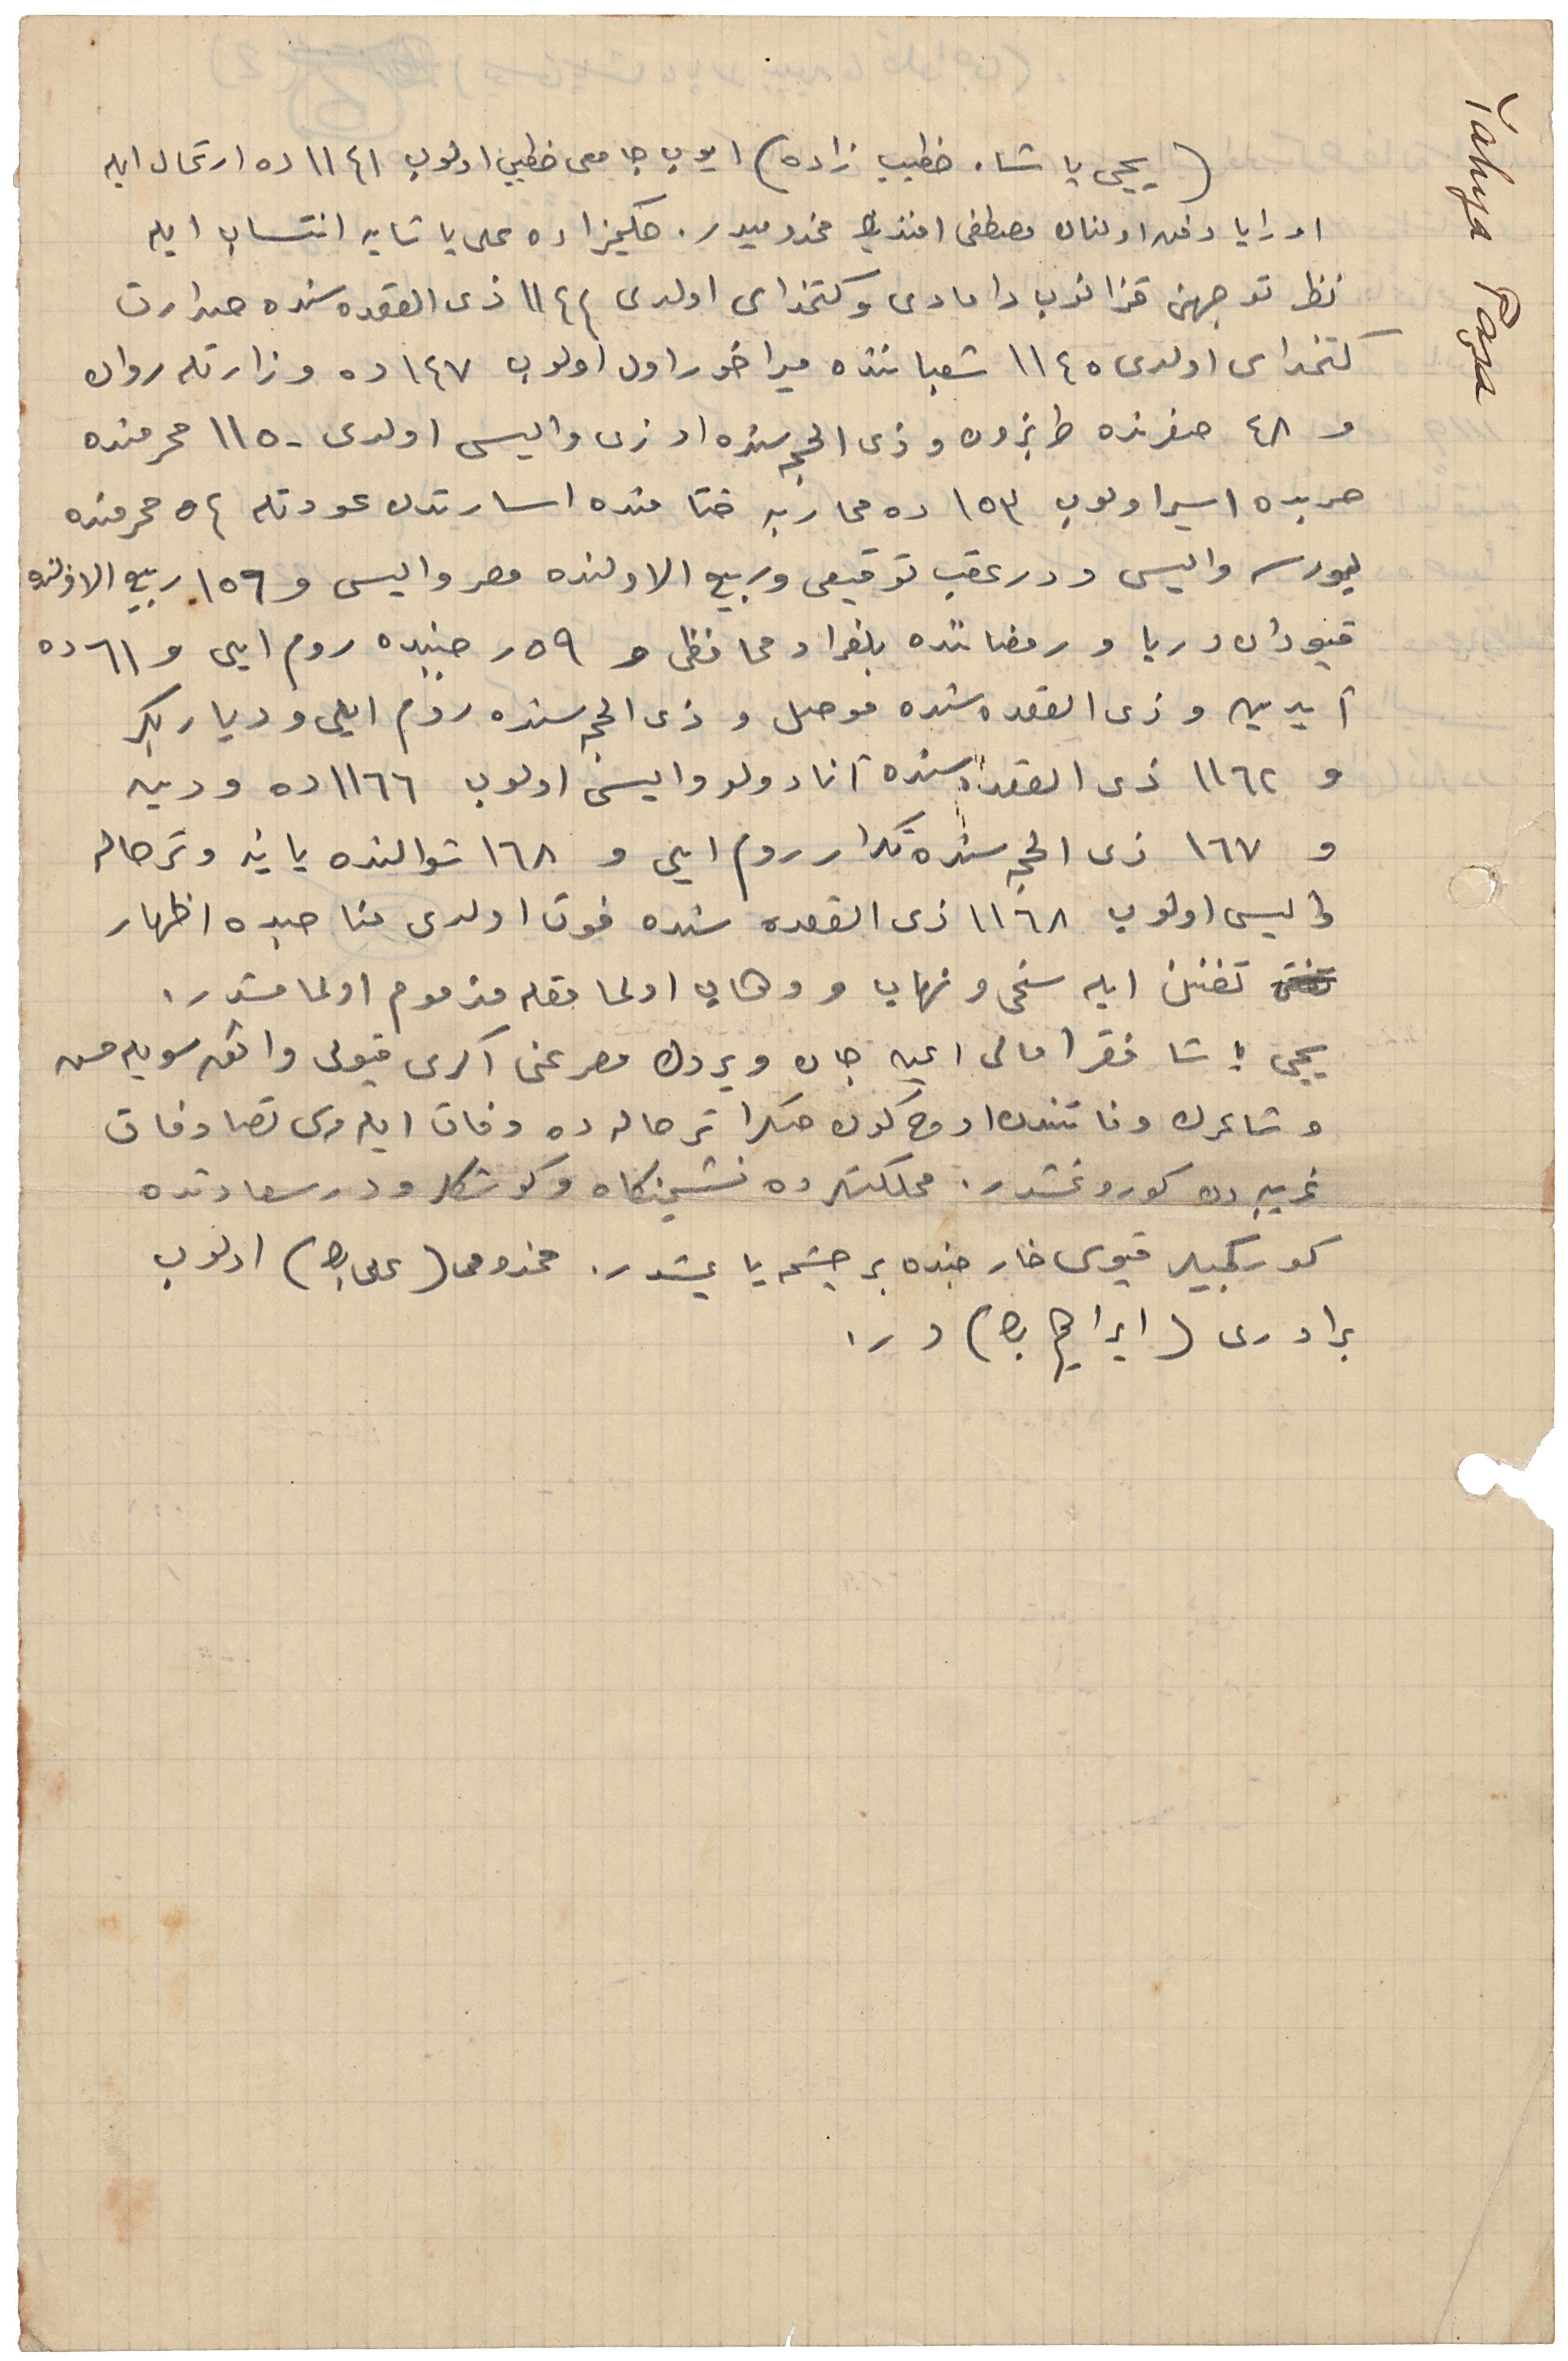 Yahya Paşa
(یحیی پاشا، خطیب زاده) ایوب جامعی خطیبی اولوب ١١٤١ ده ارتحال ایله
اورایا دفن اولنان مصطفی افندینك مخدومیدر. حکیمزاده علی پاشایه انتساب ایله
نظر توجهن قزانوب دامادی و کتخداسی اولدی ١١٤٤ ذی القعده سنده صدارت
کتخداسی اولدی ١١٤٥ شعباننده میراخور اول اولوب ١٤٧ ده وزارتله روان
و ٤٨ صفرنده طربزون و ذی الحجه سنده اوزی والیسی اولدی ١١٥٠ محرمنده
حربده اسیر اولوب ١٥٣ ده محاربه ختامنده اسارتدن عودتله ٥٤ محرمنده
والیسی و در عقب توقیعی و ربیع الاولنده مصر والیسی و ١٥٦ ربیع الاولنده
قپودان دریا و رمضاننده بلغراد محافظی و ٥٩ رجبنده روم ایلی و ٦١ ده
آیدین و ذی القعده سنده موصل و ذی الحجه سنده روم ایلی و دیاربکر
و ١١٦٢ ذی القعده سنده آنادولو والیسی اولوب ١١٦٦ ده ودین
و ١٦٧ ذی الحجه سنده تکرار روم ایلی و ١٦٨ شوالنده یانیه و ترحاله
والیسی اولوب ١١٦٨ ذی القعده سنده فوت اولدی مناصبده اظهار
تفنن ایله سخی و نهاب و وهاب اولمامقله مذموم اولمامشدر.
یحیی پاشا فقرا مالی ایچه جان ویردك مصرعنی اکری قپولی واثق سویلەمش
و شاعرك وفاتندن اوچ کون صکرا ترحاله ده وفات ایلەمسی تصادفات
غریبه دن کورونمشدر. مملکتلرده نشیمنکاه و کوشکلر و در سعادتده
کورکجیلر قپوسی خارجنده بر چشمه یاپمشدر. مخدومی (علی بك) اولوب
برادری (ابراهیم بك) در.